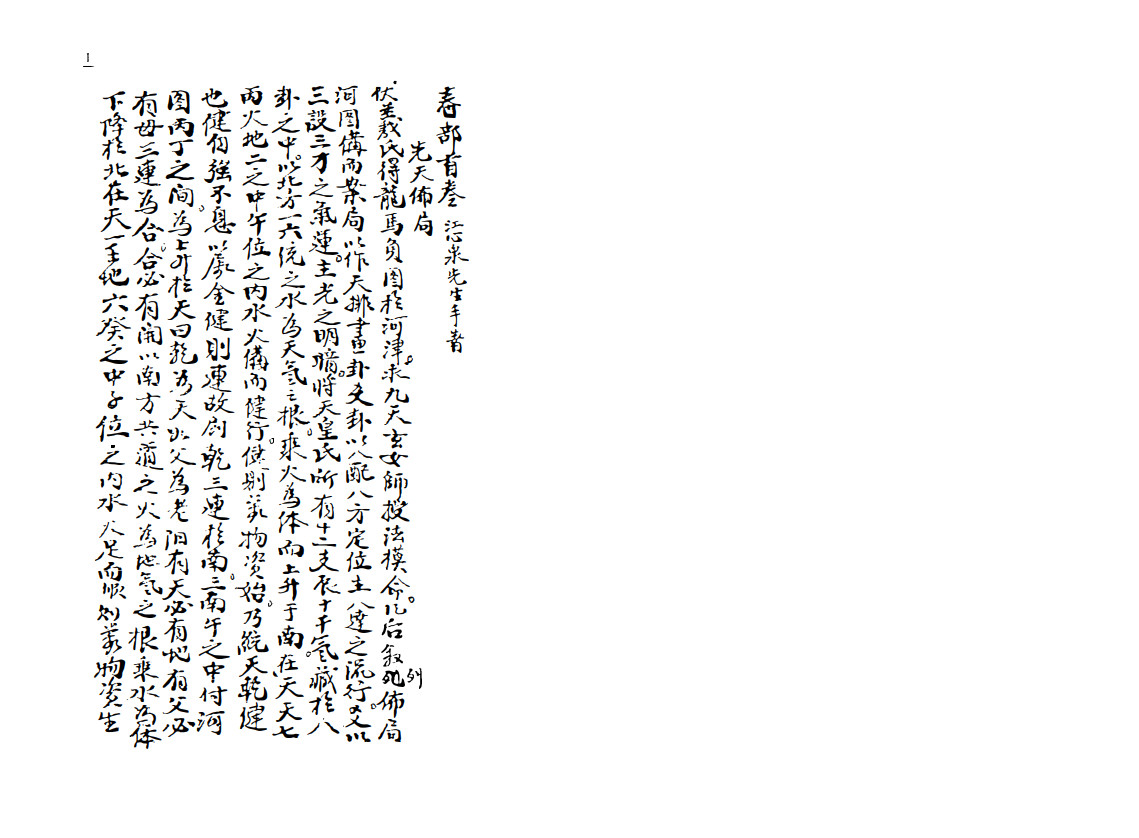 1
春部首卷 江心泉先生手著
先天佈局
伏羲氏得龍馬負圖於河津。求九天玄女師授法模命化。后敘列佈局
河图備而案局以作天排畫卦爻卦以八配八方定位主八達之流行。又以
三設三才之氣運。主光之明暗。将天皇氏所有十二支辰十干氣藏於八
卦之中。以北方一六統之水為天氣之根。乘火為体而上升于南。在天天七
丙火地二之中午位之内水火備而健行。健則萬物资始。乃統天乾健
也健自強不息以属金健則連故尉乾三連於南。三南午之中付河
图丙丁之间。為上升於天曰乾為天以父為老阳有天必有地有父必
有母三連為合。合必有開以南方共道之火為地氣之根乘水為体
下降於北在天一壬地六癸之中子位之内水火足而順則萬物资生